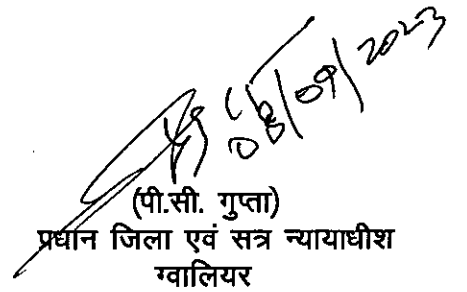 08/09/2023
(पी.सी. गुप्ता)
प्रधान जिला एवं सत्र न्यायाधीश
ग्वालियर